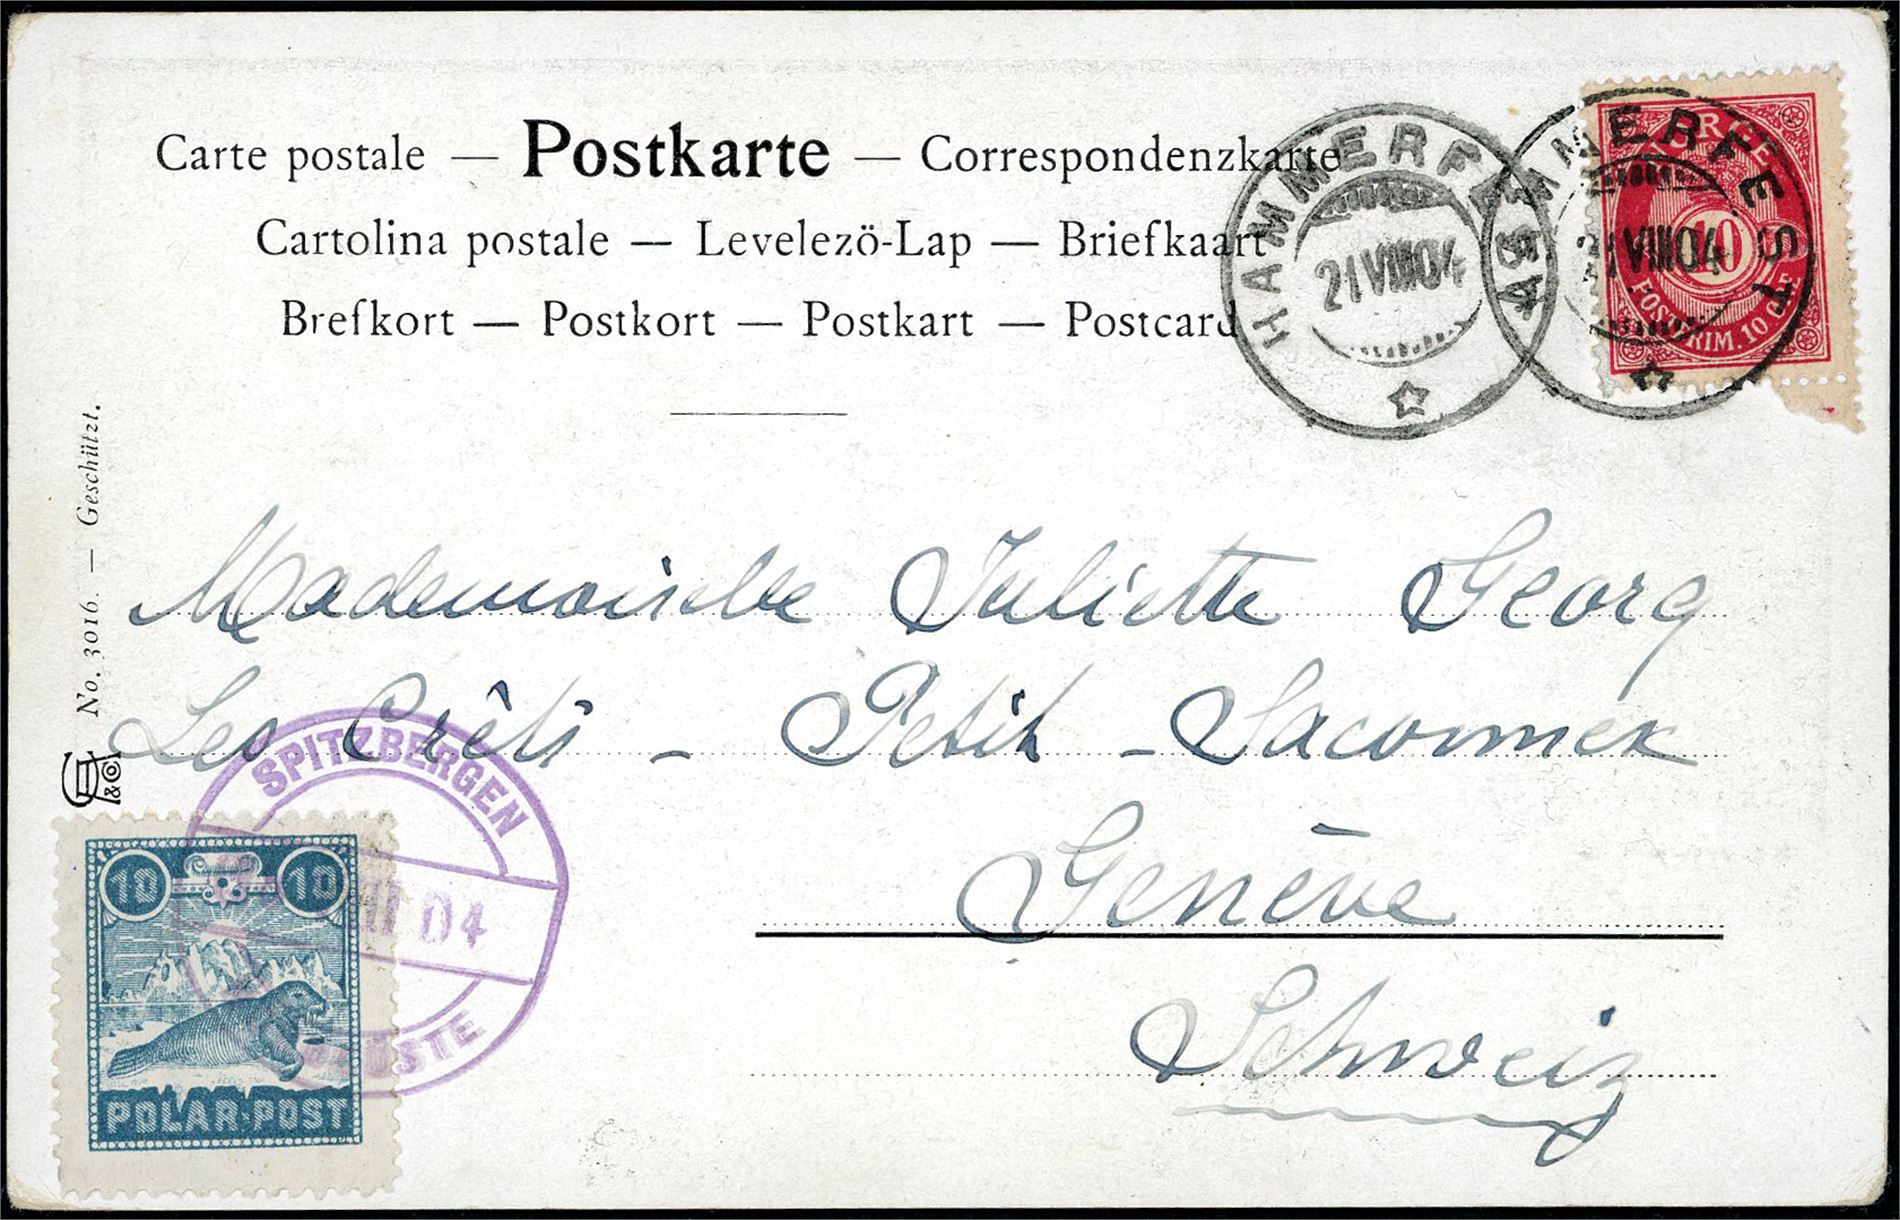 Carte postale — Postkarte — Correspondenzkarte
Cartolina postale — Levelezö-Lap — Briefkaart
Brefkort — Postkort — Postkart — Postcard
HAMMERFEST
21 VIII 04
HAMMERFEST
21 VIII 04
NORGE
10
POSTFRIM. 10 ØRE
No. 3016. — Geschützt.
& Co
Mademoiselle Juliette Georg
Les Crêts - Petit - Saconnex
Genève
Schweiz
SPITZBERGEN
04
KÜSTE
10 10
POLAR-POST